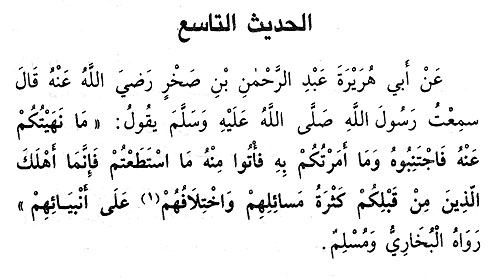 الحديث التاسع
عَنْ أَبي هُرَيْرَةَ عَبْدِ الرَّحْمٰنِ بْنِ صَخْرٍ رَضيَ اللَّهُ عَنْهُ قَالَ
سمِعْتُ رَسُولَ اللَّهِ صَلَّى اللَّهُ عَلَيْهِ وَسَلَّمَ يقُولُ: « مَا نَهَيْتُكُمْ
عَنْهُ فَاجْتَنِبُوهُ وَمَا أَمَرْتُكُمْ بِهِ فأْتُوا مِنْهُ مَا اسْتَطَعْتُمْ فَإِنَّمَا أَهْلَكَ
الَّذِينَ مِنْ قَبْلِكُمْ كَثْرَةُ مَسائِلِهِمْ وَاخْتِلَافُهُمْ(١) عَلَى أَنْبِيَـائِهِمْ »
رَوَاهُ الْبُخَارِيُّ وَمُسْلِمٌ .